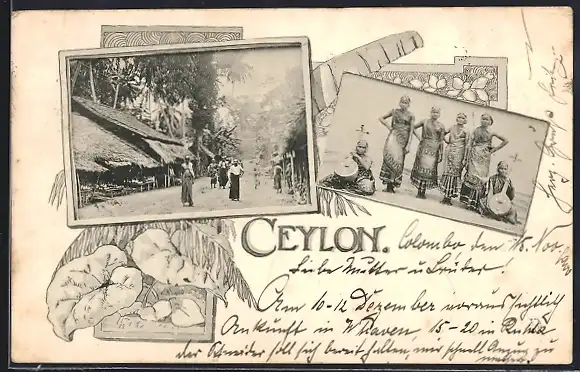 CEYLON.
Colombo den 15. Nov.
Liebe Mutter u Brüder!
Am 10-12 Dezember voraussichtlich
Ankunft in W'haven, 15-20 in
der Schneider soll sich bereit halten, mir schnell Anzug zu
machen